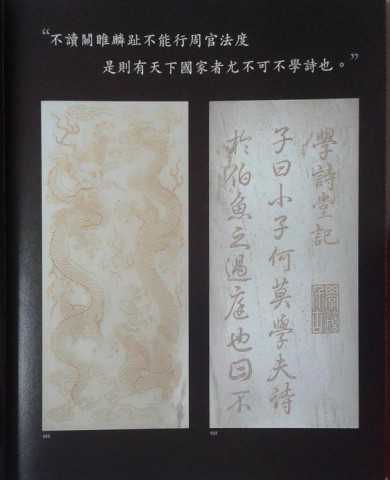 “不讀關雎麟趾不能行周官法度
是則有天下國家者尤不可不學詩也。”
學詩堂記
子曰小子何莫學夫詩
於伯魚之過庭也曰不